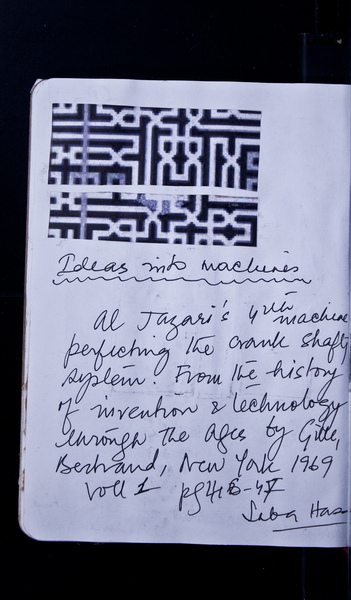 Ideas into machines
Al Jazari's 4th machine
perfecting the crank shaft
system. From the history
of invention & technology
through the ages by Gille,
Bertrand, New York 1969
Voll 1 pg
Saba Has